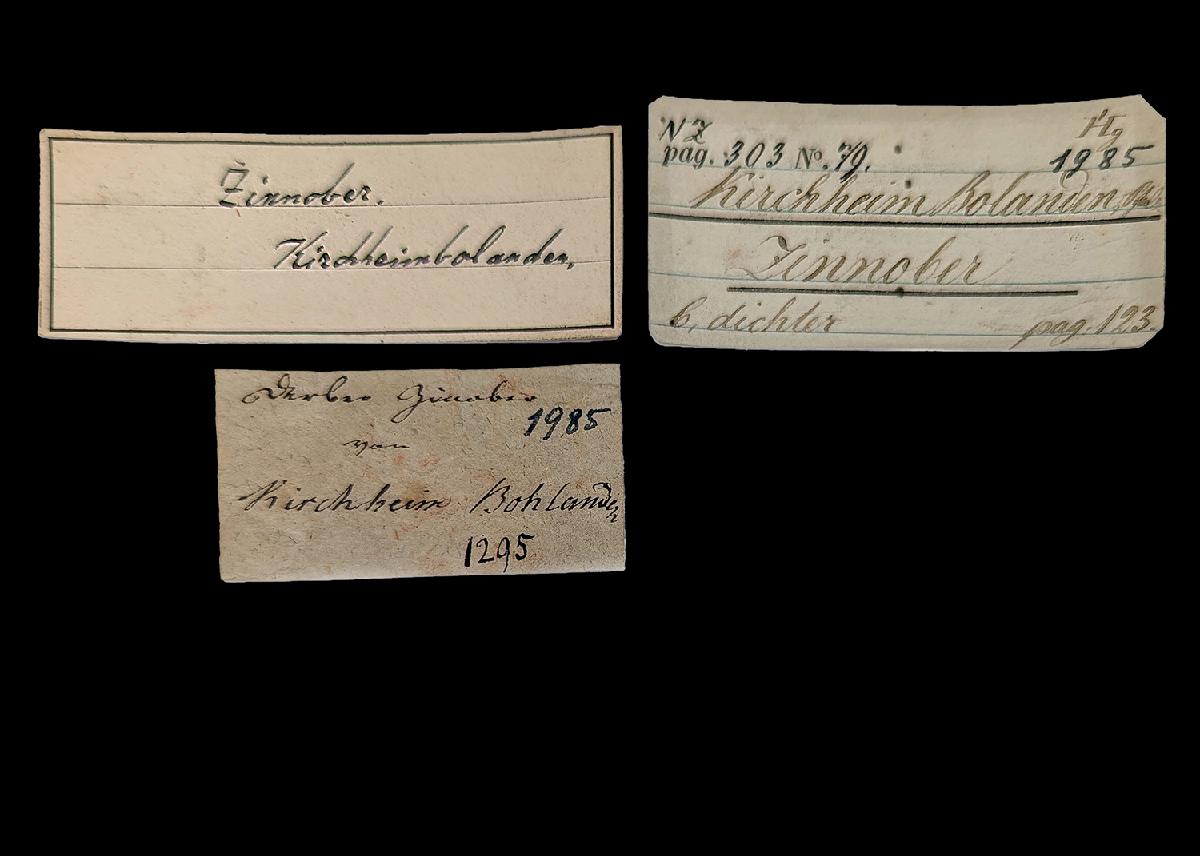 Zinnober.
Kirchheimbolanden,
NZ Hg
pag. 303 No. 79. 1985
Kirchheim Bolanden
Zinnober
b, dichter pag. 123.
Derber Zinober
1985
von
Kirchheim Bohlanden
1295